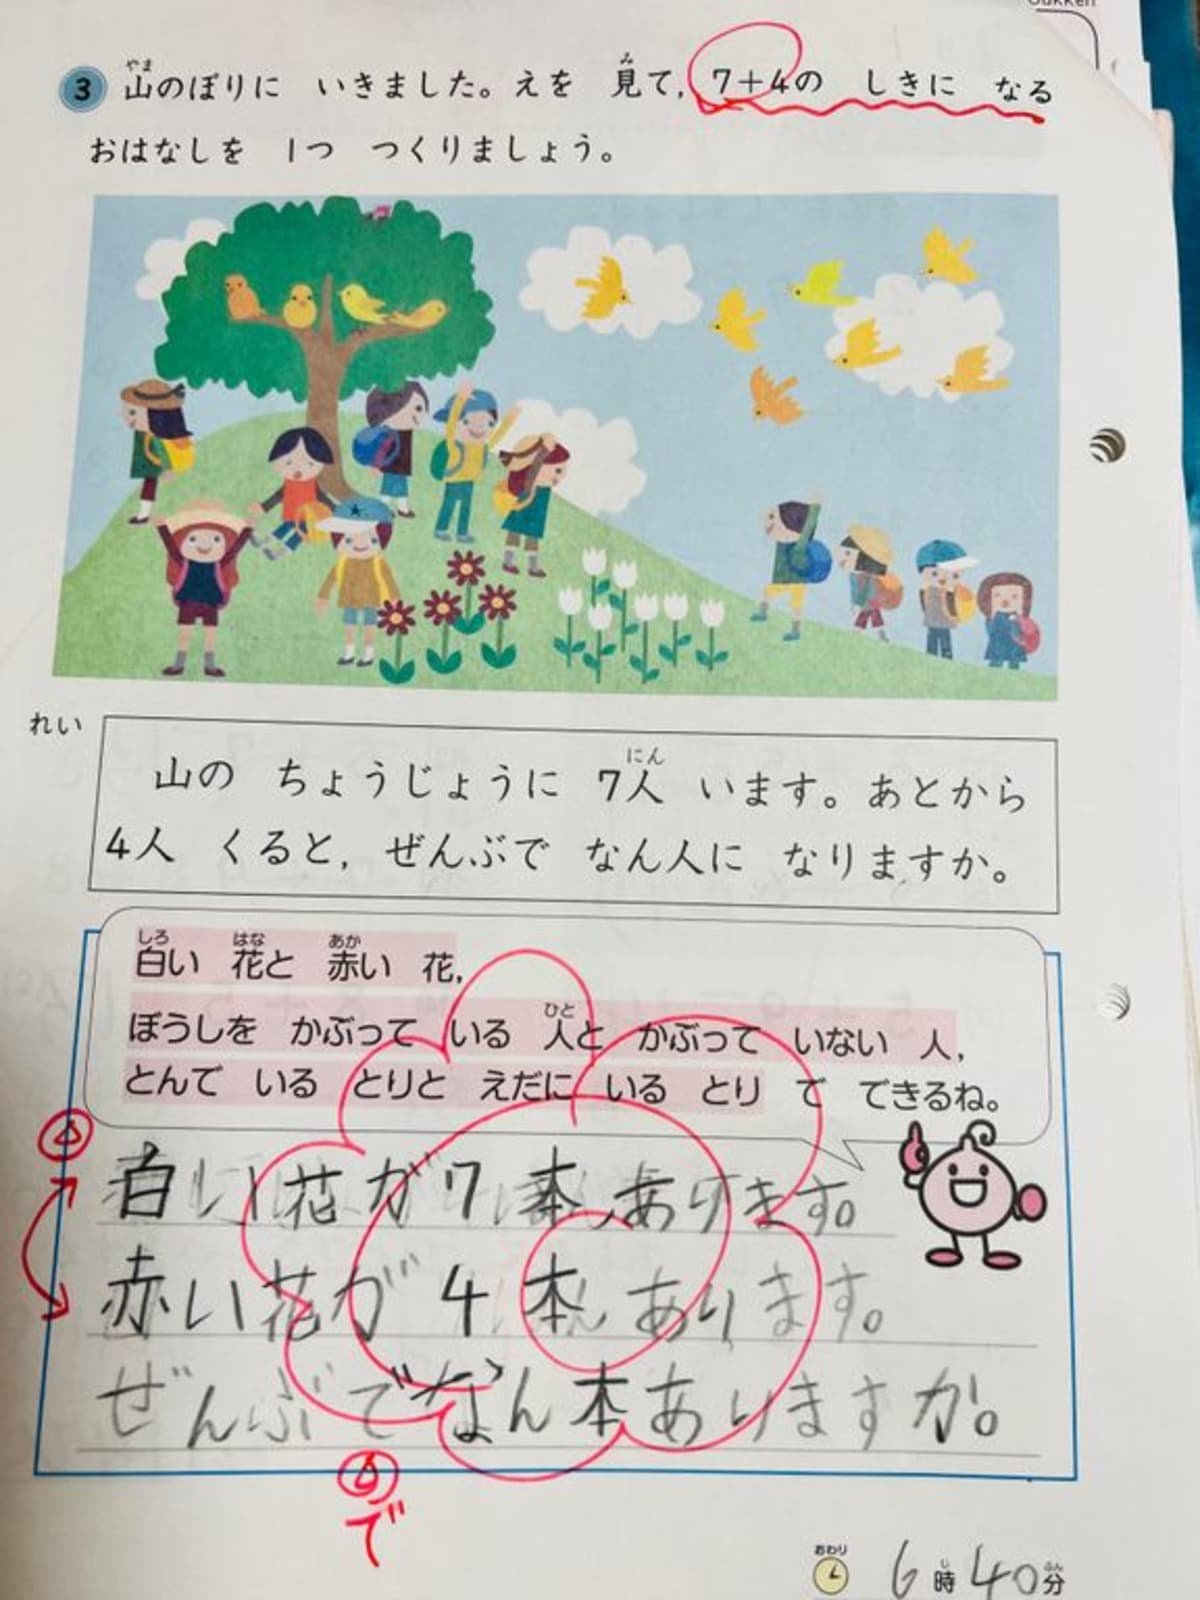 Gakken
3 山のぼりに いきました。えを 見て, 7+4の しきに なる
やま み
おはなしを 1つ つくりましょう。
れい
山の ちょうじょうに 7人 います。あとから
にん
4人 くると, ぜんぶで なん人に なりますか。
白い 花と 赤い 花,
しろ はな あか
ぼうしを かぶって いる 人と かぶって いない 人,
ひと
とんで いる とりと えだに いる とり で できるね。
白い花が7本あります。
赤い花が4本あります。
ぜんぶでなん本ありますか。
で
おわり
6時40分
じ ふん